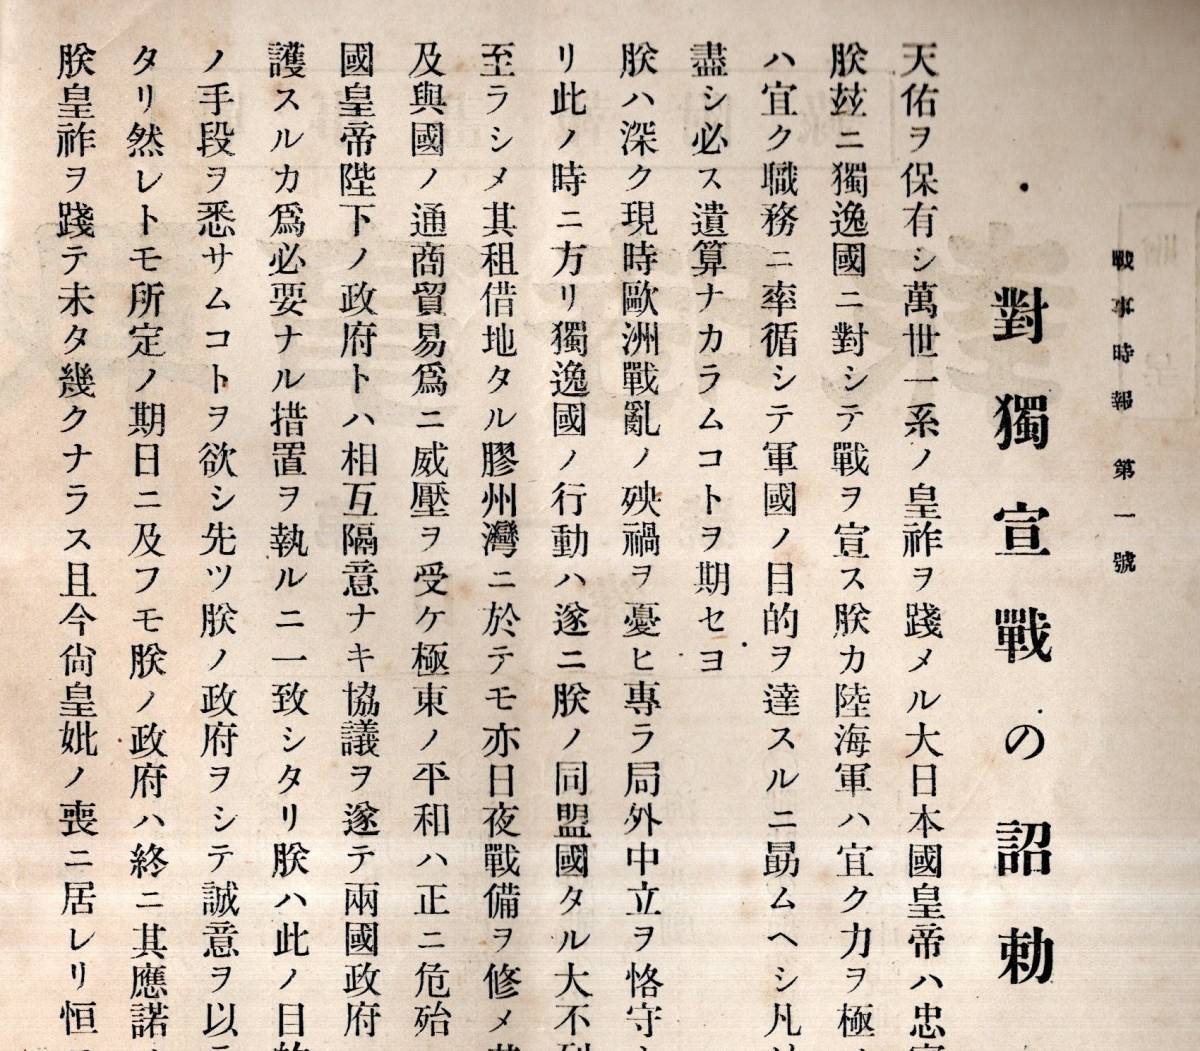 戰時時報 第一號
對獨宣戰の詔勅
天佑ヲ保有シ萬世一系ノ皇祚ヲ踐メル大日本國皇帝ハ忠
朕玆ニ獨逸國ニ對シテ戰ヲ宣ス朕カ陸海軍ハ宜ク力ヲ極
ハ宜ク職務ニ率循シテ軍國ノ目的ヲ達スルニ勗ムヘシ凡
盡シ必ス遺算ナカラムコトヲ期セヨ
朕ハ深ク現時歐洲戰亂ノ殃禍ヲ憂ヒ專ラ局外中立ヲ恪守
リ此ノ時ニ方リ獨逸國ノ行動ハ遂ニ朕ノ同盟國タル大不列
至ラシメ其租借地タル膠州灣ニ於テモ亦日夜戰備ヲ修メ
及與國ノ通商貿易爲ニ威壓ヲ受ケ極東ノ平和ハ正ニ危殆
國皇帝陛下ノ政府トハ相互隔意ナキ協議ヲ遂テ兩國政府
護スルカ爲必要ナル措置ヲ執ルニ一致シタリ朕ハ此ノ目的
ノ手段ヲ悉サムコトヲ欲シ先ツ朕ノ政府ヲシテ誠意ヲ以テ
タリ然レトモ所定ノ期日ニ及フモ朕ノ政府ハ終ニ其應諾
朕皇祚ヲ踐テ未タ幾クナラス且今尙皇妣ノ喪ニ居レリ恒